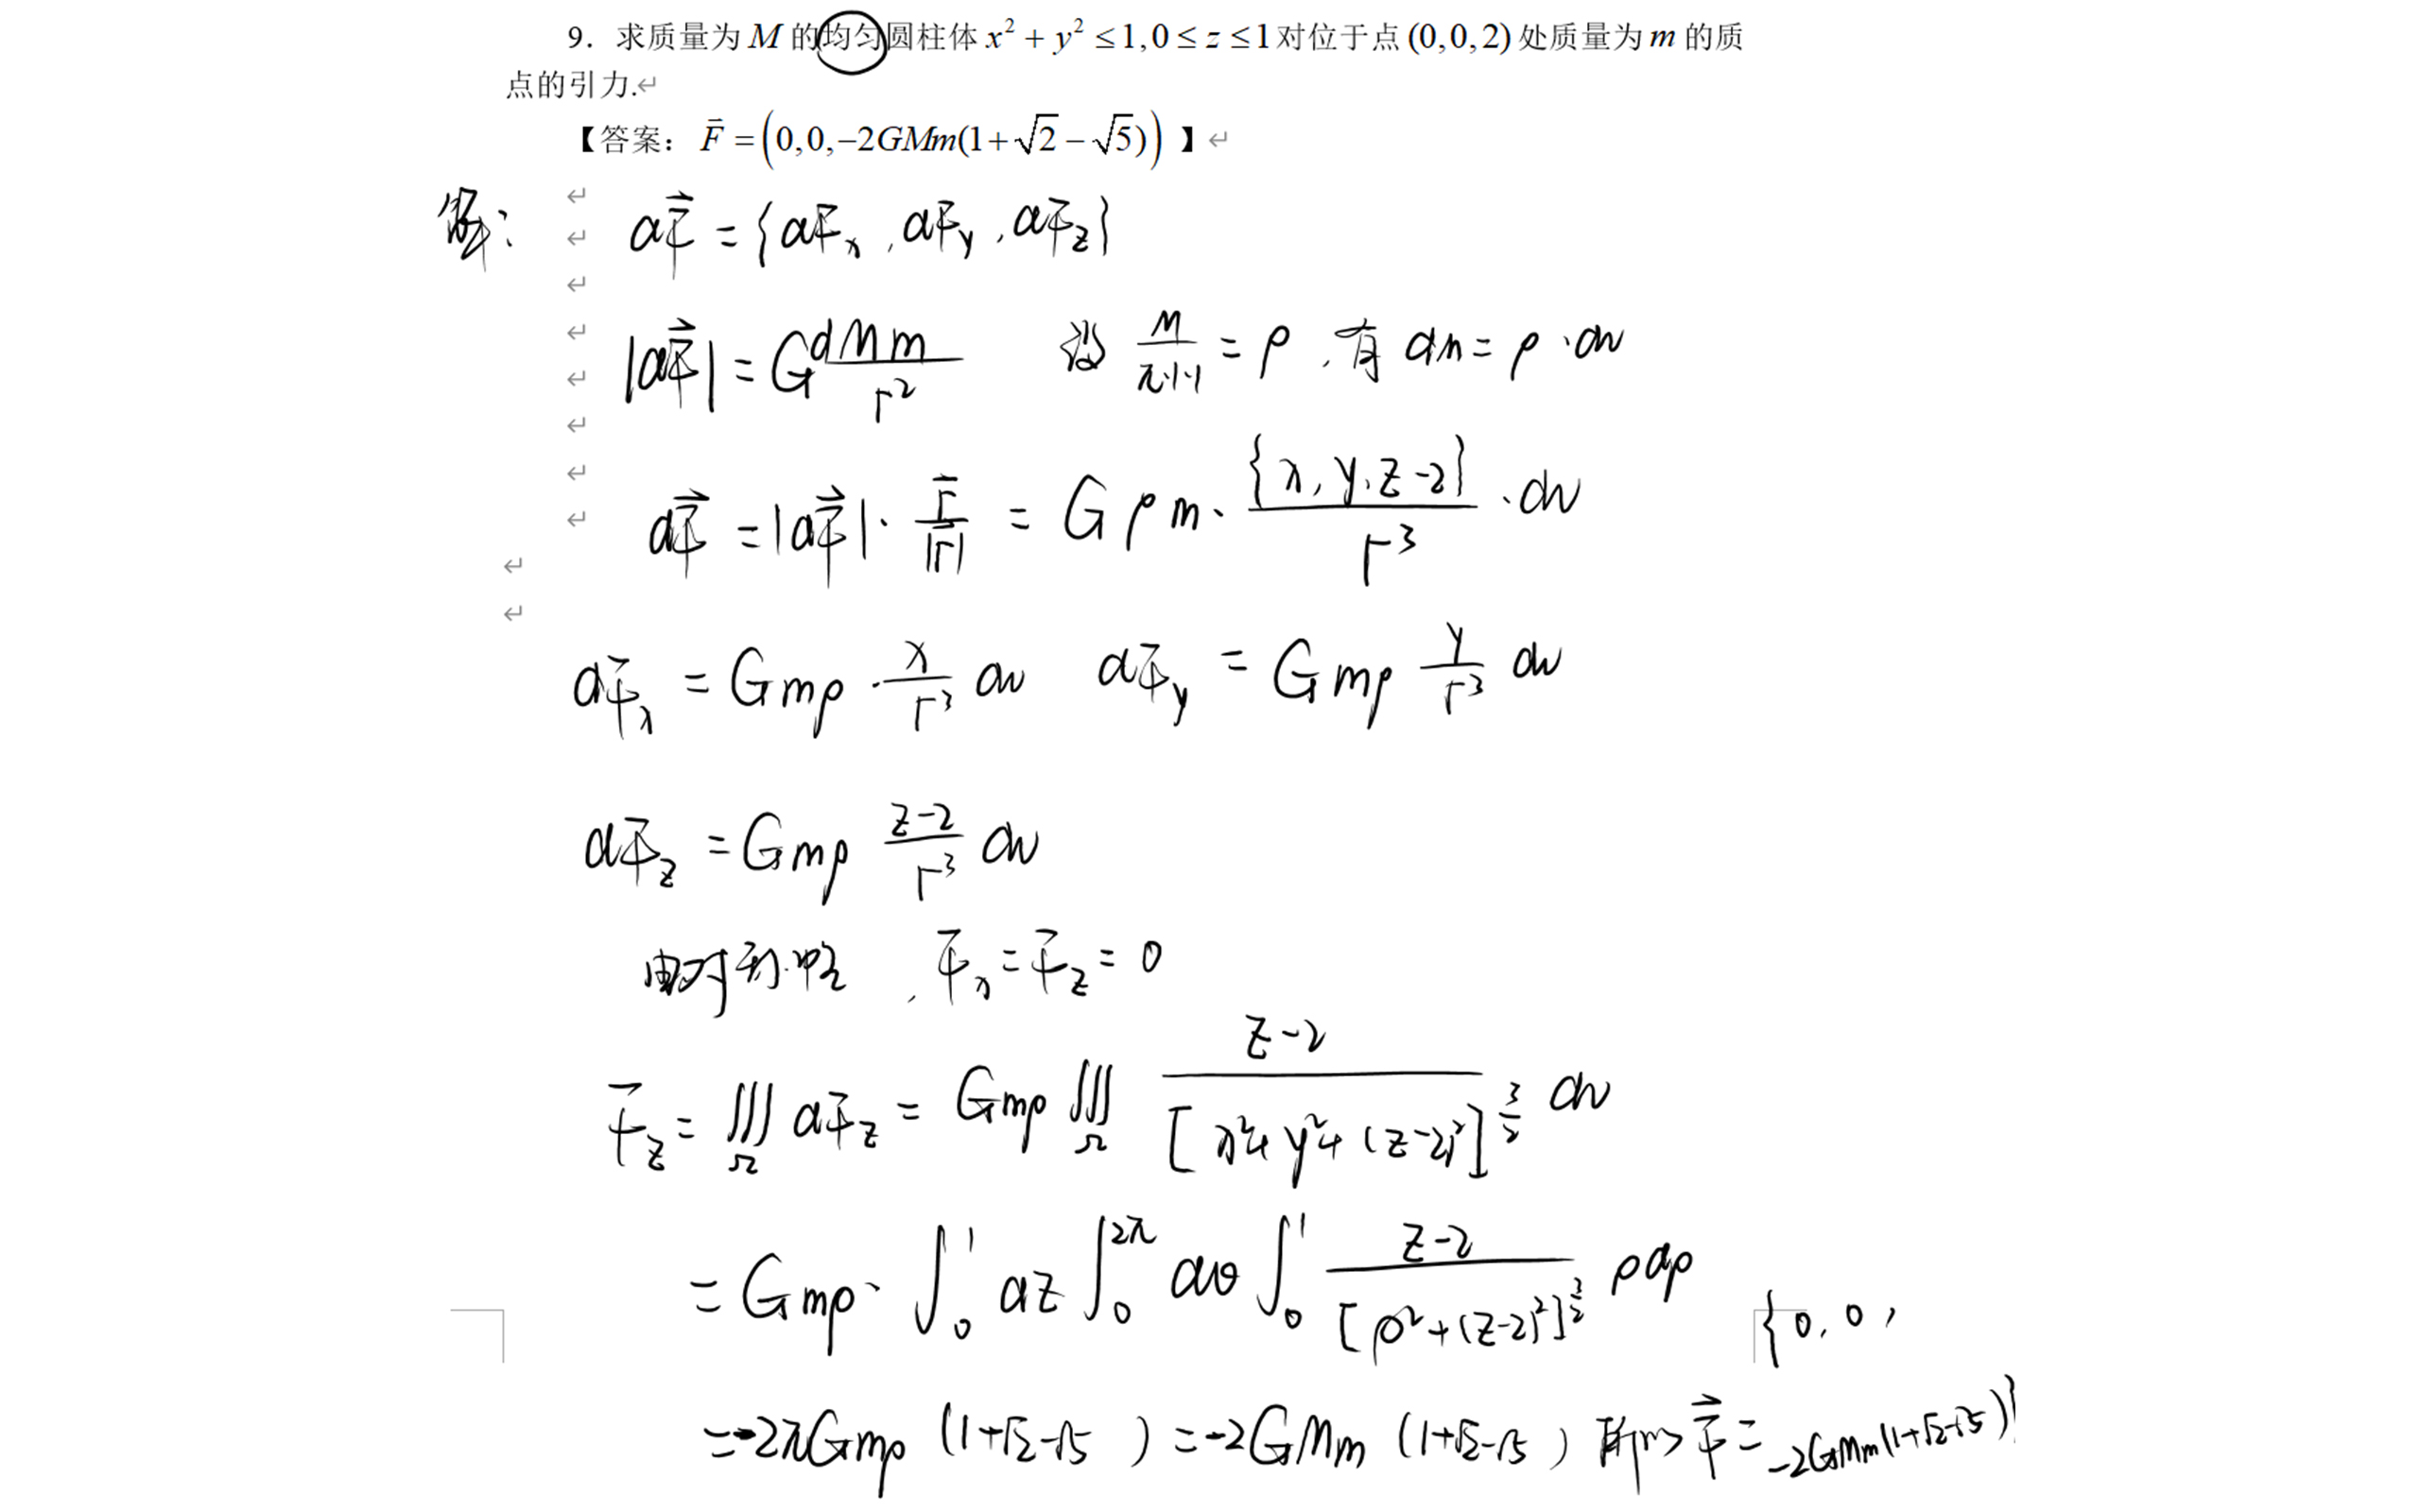 9. 求质量为 M 的均匀圆柱体 x² + y² ≤ 1, 0 ≤ z ≤ 1 对位于点 (0,0,2) 处质量为 m 的质
点的引力.
【答案: F⃗ = (0,0,−2GMm(1+√2−√5)) 】
解: dF⃗ = {dFx, dFy, dFz}
|dF⃗| = G dMm/r² 设 M/(π·1·1) = ρ, 有 dm = ρ·dv
dF⃗ = |dF⃗|· r⃗/|r⃗| = Gρm· {x, y, z−2}/r³ ·dv
dFx = Gmρ· x/r³ dv dFy = Gmρ y/r³ dv
dFz = Gmρ (z−2)/r³ dv
由对称性, Fx = Fz = 0
Fz = ∭Ω dFz = Gmρ ∭Ω (z−2)/[x²+y²+(z−2)²]^(3/2) dv
= Gmρ· ∫₀¹ dz ∫₀^(2π) dθ ∫₀¹ (z−2)/[ρ²+(z−2)²]^(3/2) ρdρ
= −2πGmρ (1+√2−√5) = −2GMm (1+√2−√5) 所以 F⃗ = {0, 0, −2GMm(1+√2−√5)}